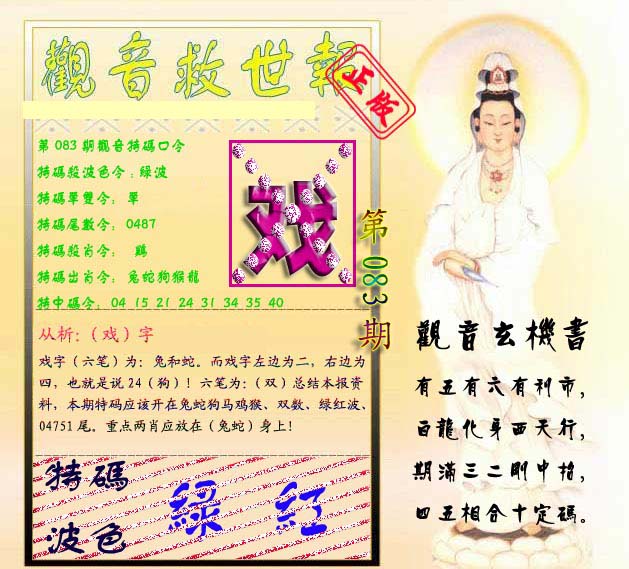 觀音救世報
正版
第083期觀音特碼口令
特碼殺波色令:綠波
特碼單雙令: 單
特碼尾數令: 0487
特碼殺肖令: 鷄
特碼出肖令: 兔蛇狗猴龍
特中碼令: 04 15 21 24 31 34 35 40
戏
第083期
从析:(戏)字
戏字(六笔)为:兔和蛇。而戏字左边为二,右边为
四,也就是说24(狗)!六笔为:(双)总结本报资
料,本期特码应该开在兔蛇狗马鸡猴、双数、绿红波、
04751尾。重点两肖应放在(兔蛇)身上!
特碼
波色
綠 紅
觀音玄機書
有五有六有利市,
白龍化身西天行,
期滿三二剛中抬,
四五相合十定碼。